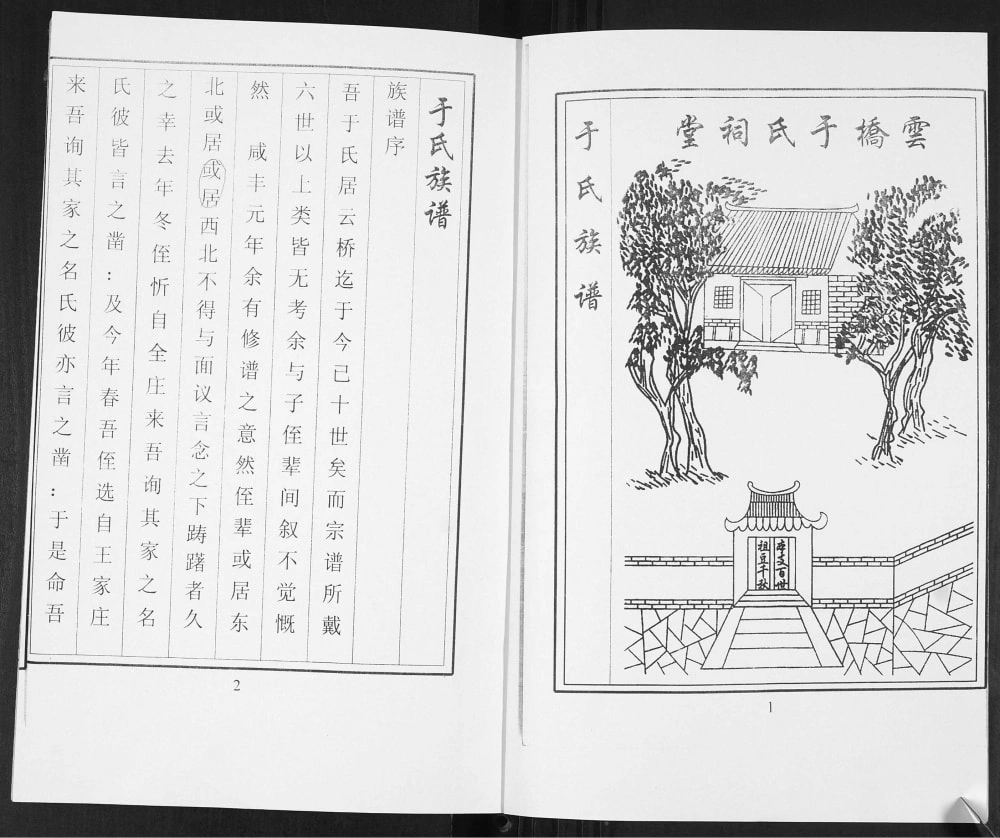 雲橋于氏祠堂
本支百世
祖豆千秋
于氏族谱
1
于氏族谱
族谱序
吾于氏居云桥迄于今己十世矣而宗谱所戴
六世以上类皆无考余与子侄辈间叙不觉慨
然 咸丰元年余有修谱之意然侄辈或居东
北或居或居西北不得与面议言念之下踌躇者久
之幸去年冬侄忻自全庄来吾询其家之名
氏彼皆言之凿：及今年春吾侄选自王家庄
来吾询其家之名氏彼亦言之凿：于是命吾
2